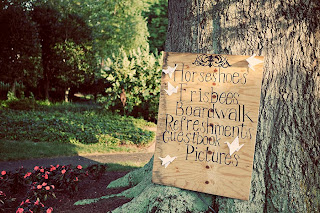 Horseshoes
Frisbees
Boardwalk
Refreshments
Guestbook
Pictures